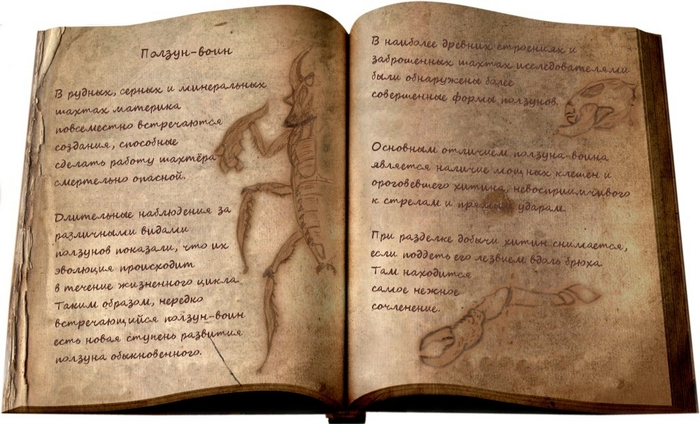 Ползун-воин
В рудных, серных и минеральных
шахтах материка
повсеместно встречаются
создания, способные
сделать работу шахтёра
смертельно опасной.
Длительные наблюдения за
различными видами
ползунов показали, что их
эволюция происходит
в течение жизненного цикла.
Таким образом, нередко
встречающийся ползун-воин
есть новая ступень развития
ползуна обыкновенного.
В наиболее древних строениях и
заброшенных шахтах исследователями
были обнаружены более
совершенные формы ползунов.
Основным отличием ползуна-воина
является наличие мощных клешен и
ороговевшего хитина, невосприимчивого
к стрелам и прямым ударам.
При разделке добычи хитин снимается,
если поддеть его лезвием вдоль брюха.
Там находится
самое нежное
сочленение.